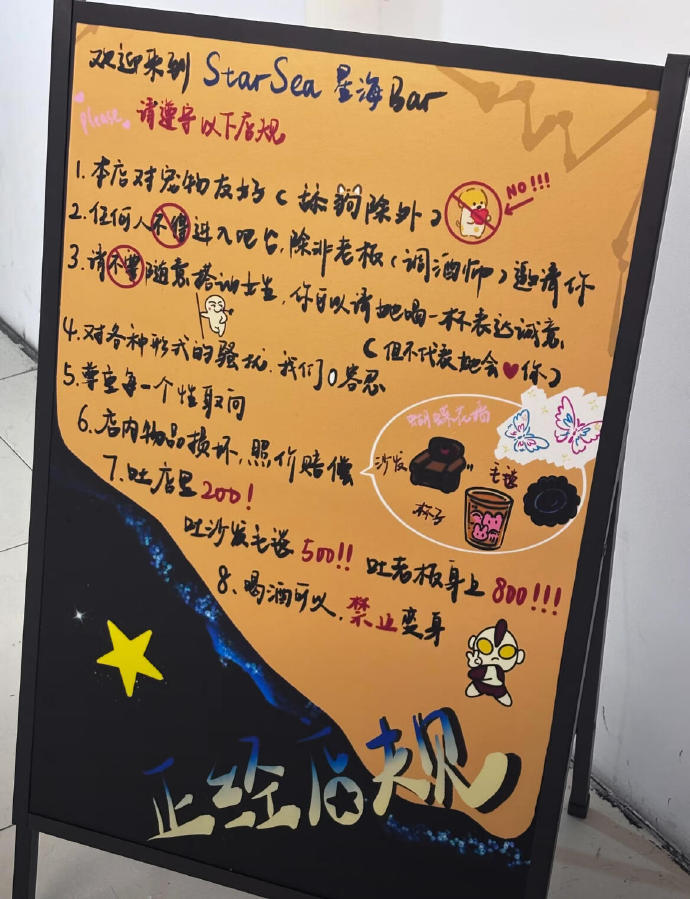 欢迎来到 StarSea 星海Bar
please 请遵守以下店规
1. 本店对宠物友好(舔狗除外)
NO!!!
2. 任何人不得进入吧台,除非老板(调酒师)邀请你
3. 请不要随意搭讪女生,你可以请她喝一杯表达诚意
(但不代表她会❤你)
4. 对各种形式的骚扰,我们0容忍
5. 尊重每一个性取向
6. 店内物品损坏,照价赔偿
蝴蝶花墙
沙发
毛毯
杯子
7. 吐店里200!
吐沙发毛毯 500!! 吐老板身上 800!!!
8. 喝酒可以,禁止变身
正经店规